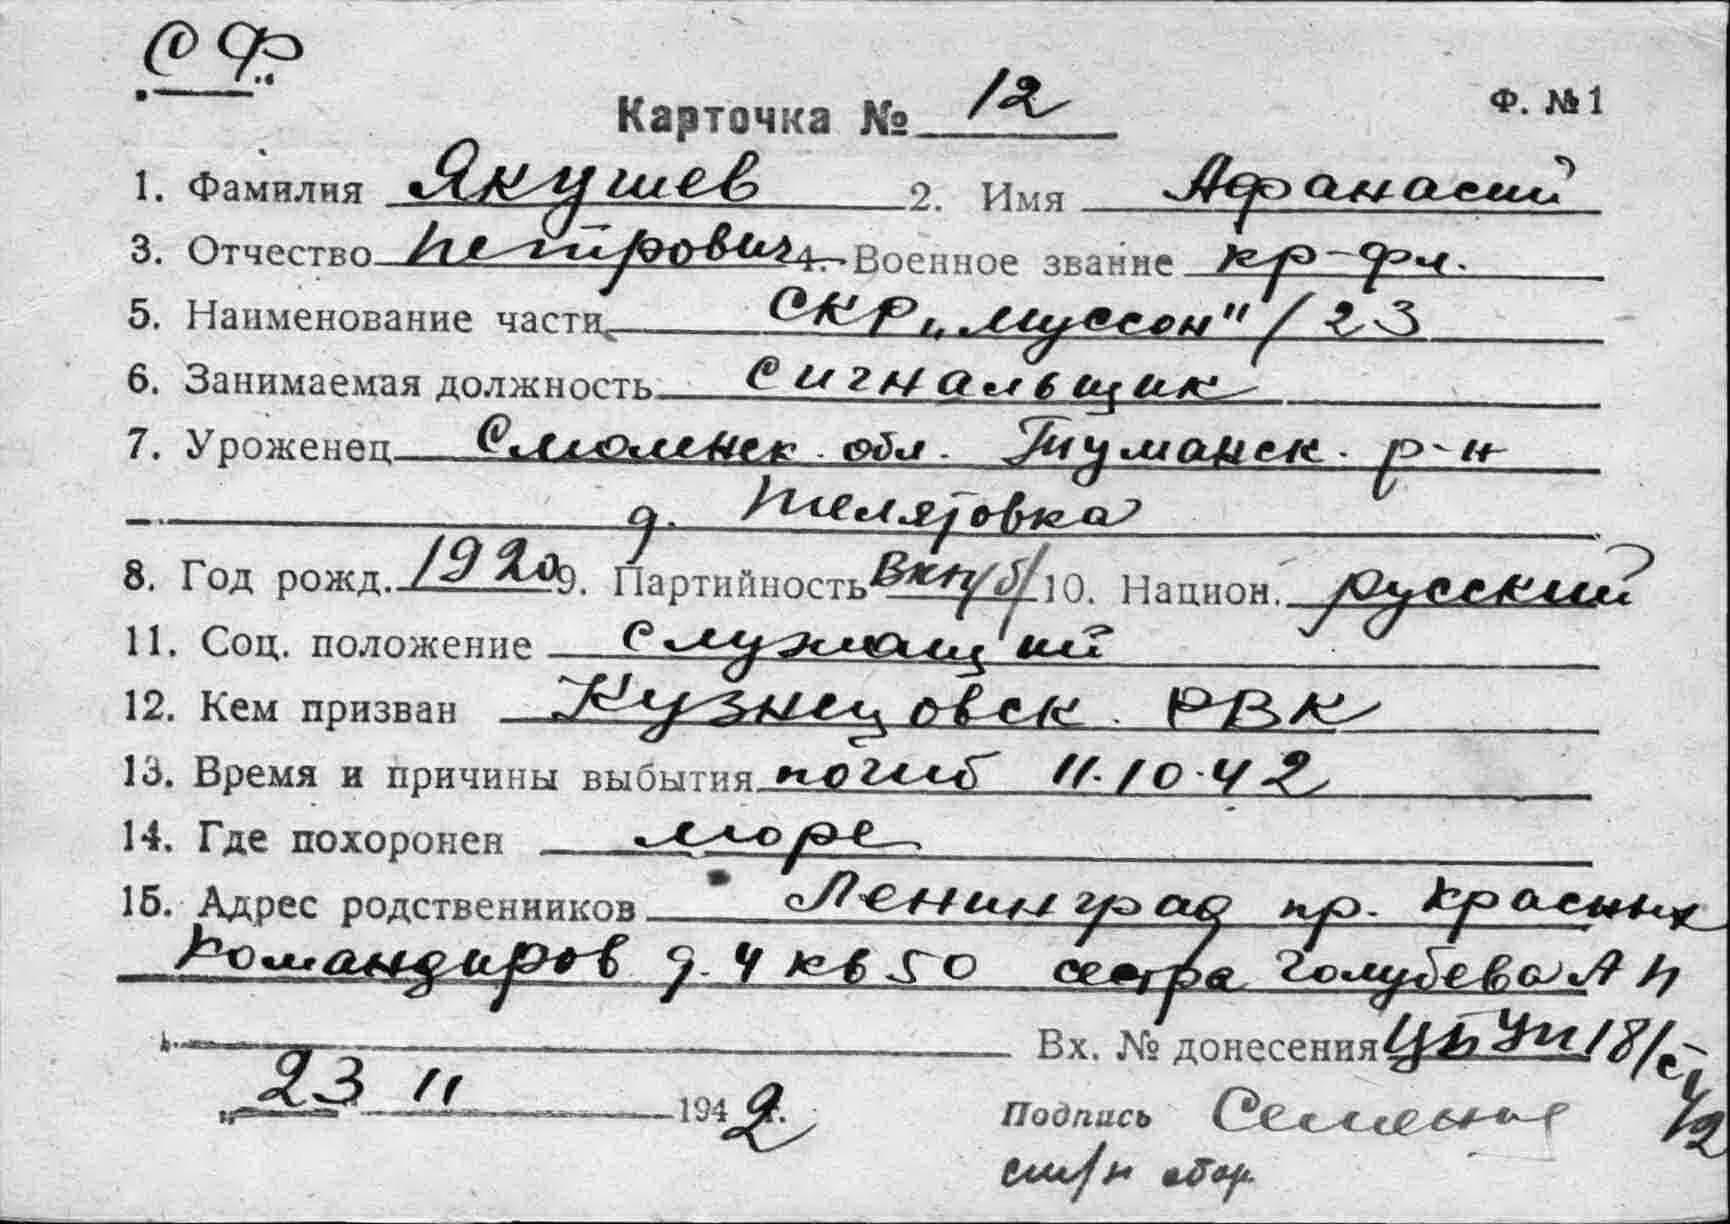 СФ
Карточка № 12
Ф. №1
1. Фамилия Якушев 2. Имя Афанасий
3. Отчество Петрович 4. Военное звание кр-фл.
5. Наименование части СКР „Муссон" / 23
6. Занимаемая должность сигнальщик
7. Уроженец Смоленск. обл. Туманск. р-н
д. Телятовка
8. Год рожд. 1920 9. Партийность ВКП/б/ 10. Национ. русский
11. Соц. положение служащий
12. Кем призван Кузнецовск. РВК
13. Время и причины выбытия погиб 11.10.42
14. Где похоронен море
15. Адрес родственников Ленинград пр. Красных
Командиров д. 4 кв 50 сестра Голубева А П
Вх. № донесения 18/
„23" 11 1942г.
Подпись